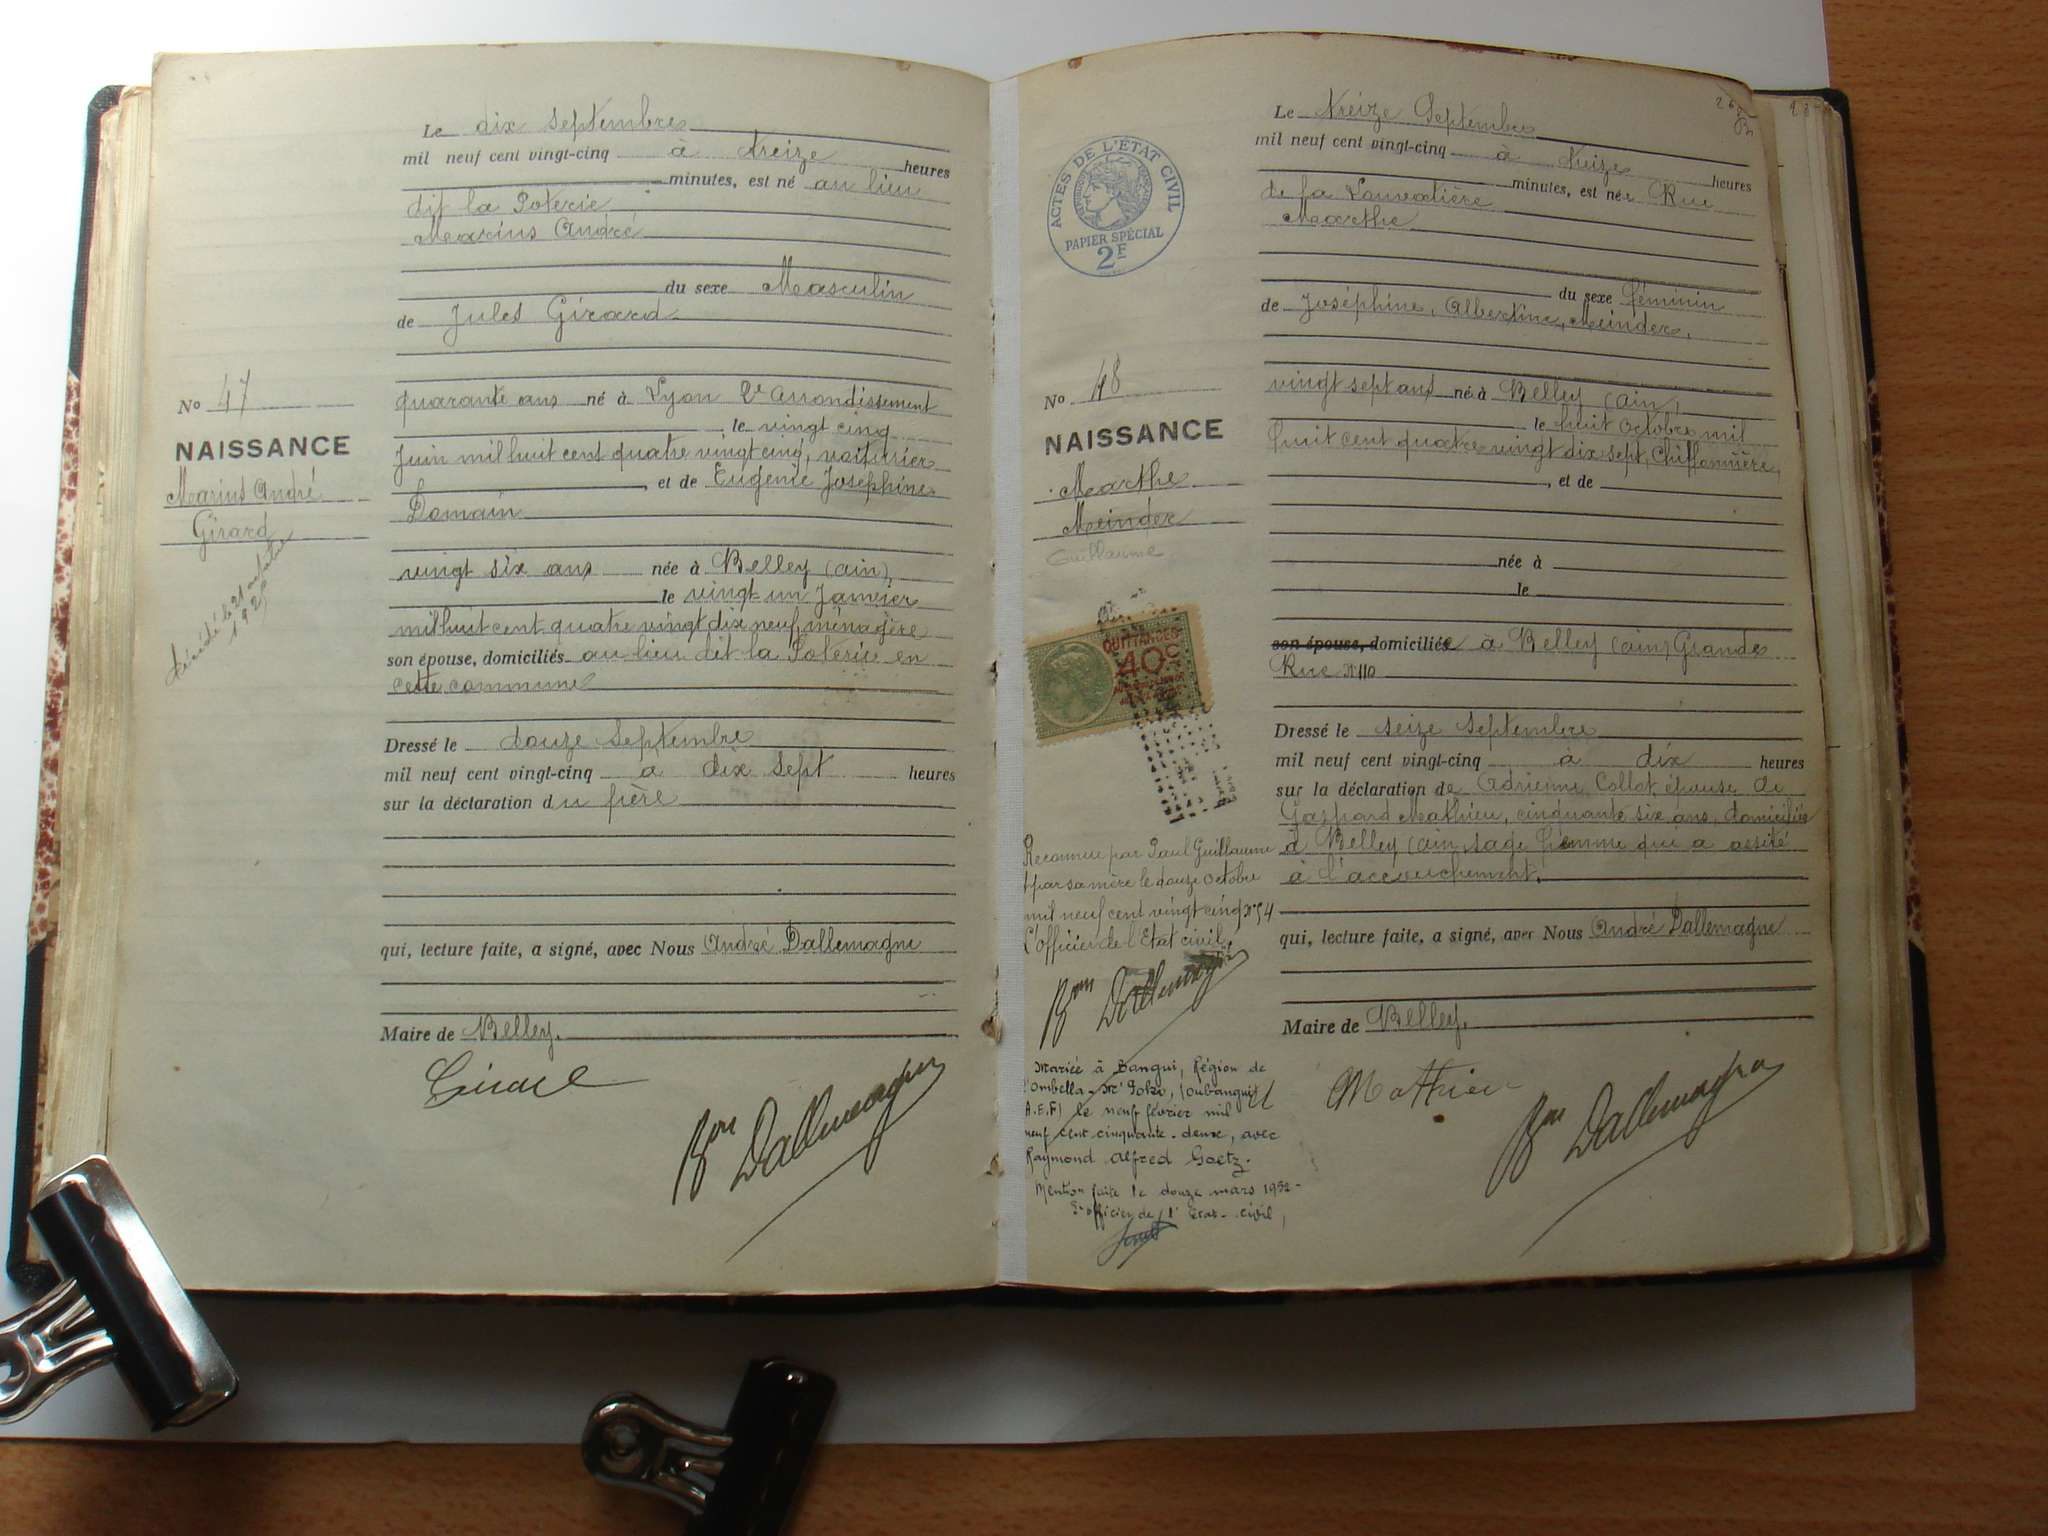 Le dix Septembre
mil neuf cent vingt-cinq à treize heures
minutes, est né au lieu
dit la Poterie
Marius André
du sexe Masculin
de Jules Girard
No 47
NAISSANCE
Marius André
Girard
décédé le 21 octobre
quarante ans né à Lyon 2e arrondissement
le vingt cinq
Juin mil huit cent quatre vingt cinq, voiturier
, et de Eugénie Joséphine
Domain
vingt six ans née à Belley (ain)
le vingt-un Janvier
mil huit cent quatre vingt dix neuf, ménagère
son épouse, domiciliés au lieu dit la Poterie en
cette commune
Dressé le douze Septembre
mil neuf cent vingt-cinq à dix sept heures
sur la déclaration du père
qui, lecture faite, a signé, avec Nous André Dallemagne
Maire de Belley.
Girard
Bon Dallemagne
Le treize Septembre
mil neuf cent vingt-cinq à treize heures
minutes, est née Rue
de la
Marthe
ACTES DE L'ÉTAT CIVIL
PAPIER SPÉCIAL
2F
du sexe féminin
de Joséphine, Albertine, Meinder,
No 48
NAISSANCE
Marthe
Meinder
Guillaume
vingt sept ans né à Belley (ain)
le huit Octobre mil
huit cent quatre vingt dix sept, Chiffonnière,
, et de
née à
le
son épouse, domiciliée à Belley (ain) Grande
Rue N° 110
QUITTANCES
40c
Dressé le seize Septembre
mil neuf cent vingt-cinq à dix heures
sur la déclaration de Adrienne Collot épouse de
Gaspard Mathieu, cinquante six ans, domiciliée
à Belley (ain) sage femme qui a assité
à l'accouchement.
qui, lecture faite, a signé, avec Nous André Dallemagne
Maire de Belley.
Mathieu
Bon Dallemagne
Reconnue par Paul Guillaume
et par sa mère le douze Octobre
mil neuf cent vingt cinq N° 54
L'officier de l'Etat civil,
Bon Dallemagne
Mariée à Bangui, Région de
l'Ombella-M'Poko, (Oubangui
A.E.F) le neuf février mil
neuf cent cinquante-deux, avec
Raymond Alfred Goetz.
Mention faite le douze mars 1952-
L'officier de l'Etat-civil,